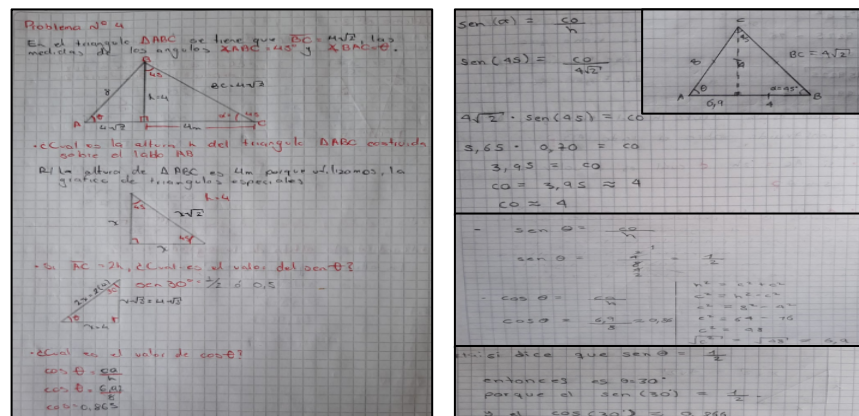 Problema Nº 4
En el triangulo ΔABC se tiene que BC = 4√2, las
medidas de los angulos ∡ABC = 45° y ∡BAC = θ.
B
45
BC = 4√2
8
h = 4
A
θ
45
C
4√3
4m
• ¿Cual es la altura h del triangulo ΔABC construida
sobre el lado AB
R/ La altura de ΔABC es 4m porque utilizamos, la
grafica de triangulos especiales
h = 4
45
x√2
x
45
x
• Si AC = 2h, ¿Cual es el valor del sen θ?
sen 30° = 1/2 ó 0,5
x√3 = 4√3
θ
x = 4
• ¿Cual es el valor de cos θ?
cos θ = ca/h
cos θ =
cos = 0,865
sen (α) = co/h
sen (45) = co/4√2
4√2 · sen (45) = co
5,65 · 0,70 = co
3,95 = co
co = 3,95 ≈ 4
co ≈ 4
C
45
8
BC = 4√2
θ
α = 45°
A
6,9
4
B
- sen θ = co/h
sen θ = 1/2
- cos θ = ca/h
cos θ = 6,9/8 = 0,86
h² = c² + c²
c² = h² - c²
c² = 8² - 4²
c² = 64 - 16
c² = 48
√c² = √48 = 6,9
si dice que sen θ = 1/2
entonces es θ = 30°
porque el sen (30°) = 1/2
y el cos (30°) = 0,866